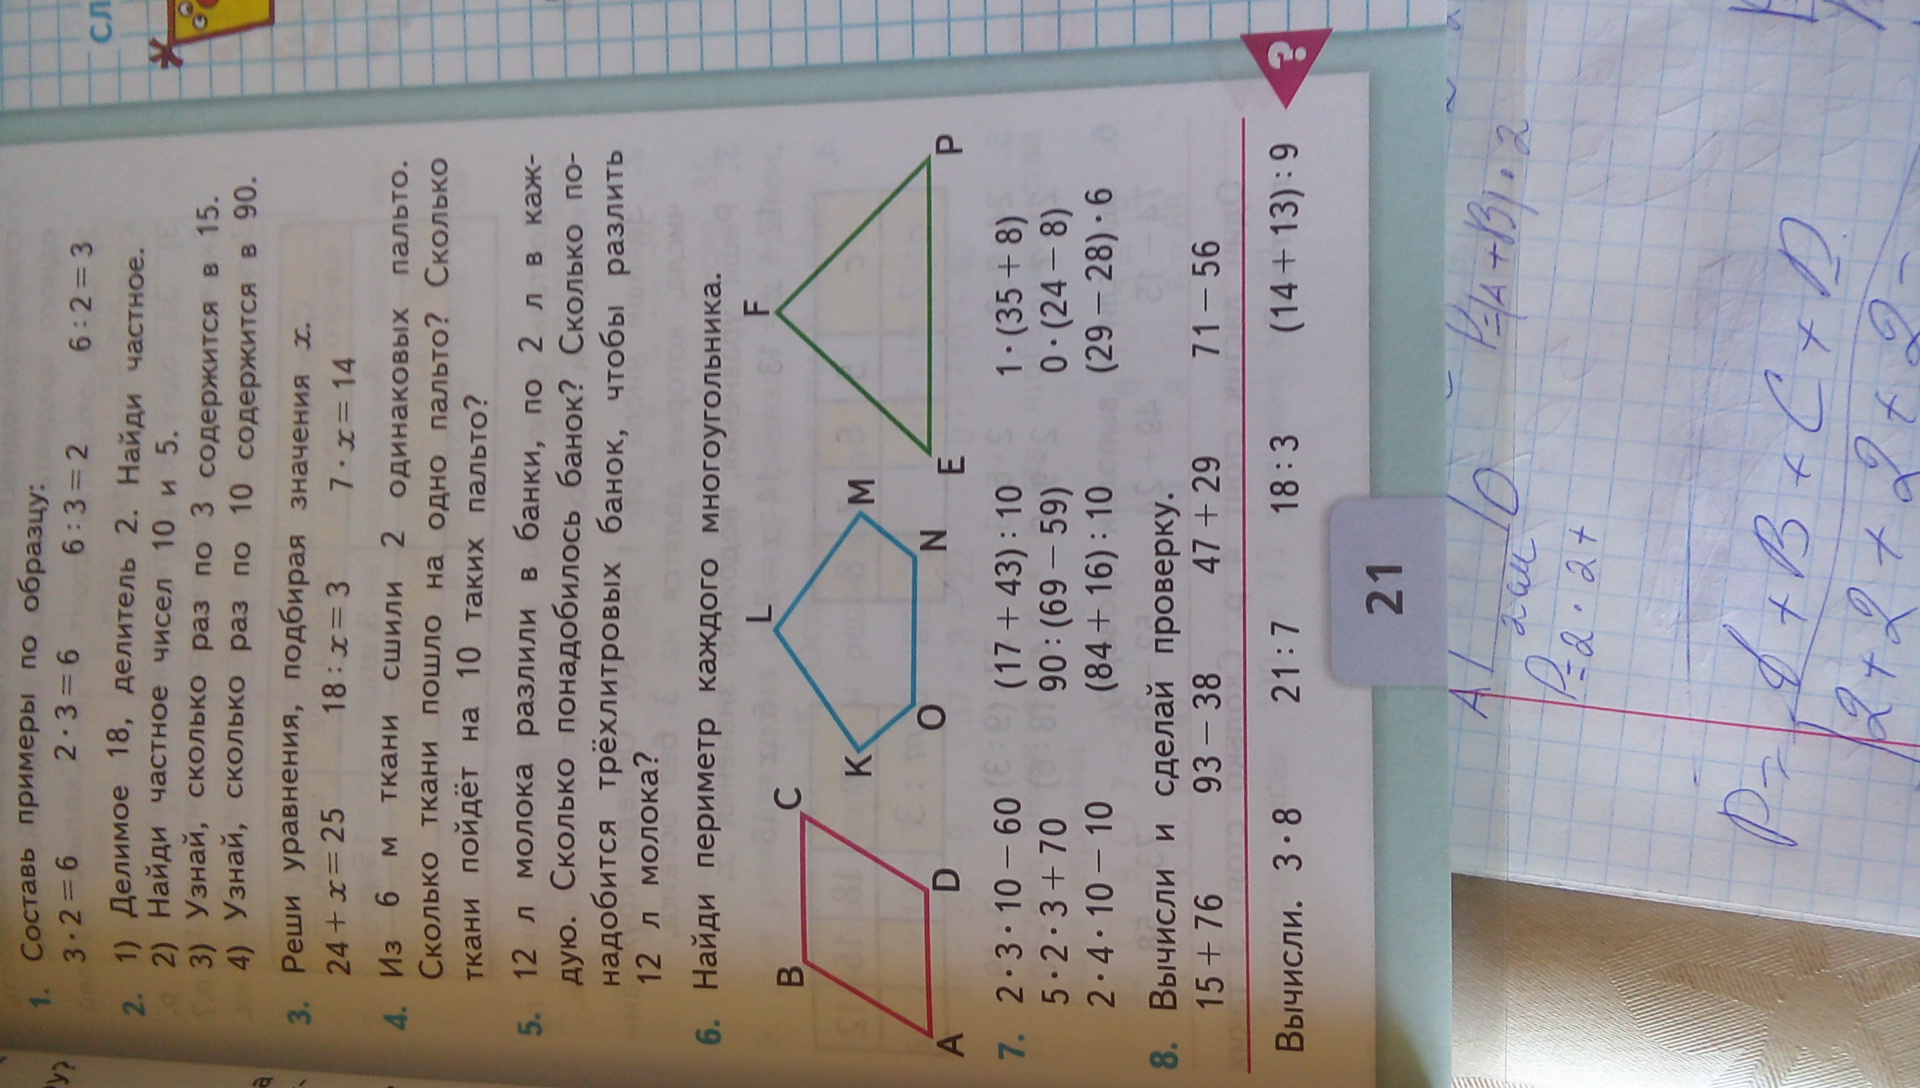 1. Составь примеры по образцу:
3 · 2 = 6 2 · 3 = 6 6 : 3 = 2 6 : 2 = 3
2. 1) Делимое 18, делитель 2. Найди частное.
2) Найди частное чисел 10 и 5.
3) Узнай, сколько раз по 3 содержится в 15.
4) Узнай, сколько раз по 10 содержится в 90.
3. Реши уравнения, подбирая значения x.
24 + x = 25 18 : x = 3 7 · x = 14
4. Из 6 м ткани сшили 2 одинаковых пальто.
Сколько ткани пошло на одно пальто? Сколько
ткани пойдёт на 10 таких пальто?
5. 12 л молока разлили в банки, по 2 л в каж-
дую. Сколько понадобилось банок? Сколько по-
надобится трёхлитровых банок, чтобы разлить
12 л молока?
6. Найди периметр каждого многоугольника.
B C A D
K L M N O
F E P
7. 2 · 3 · 10 − 60 (17 + 43) : 10 1 · (35 + 8)
5 · 2 · 3 + 70 90 : (69 − 59) 0 · (24 − 8)
2 · 4 · 10 − 10 (84 + 16) : 10 (29 − 28) · 6
8. Вычисли и сделай проверку.
15 + 76 93 − 38 47 + 29 71 − 56
Вычисли. 3 · 8 21 : 7 18 : 3 (14 + 13) : 9
?
21
A D P=(A+B)·2
2 см
P=2·2+
P=
+ B + C + D
2+2+2+2